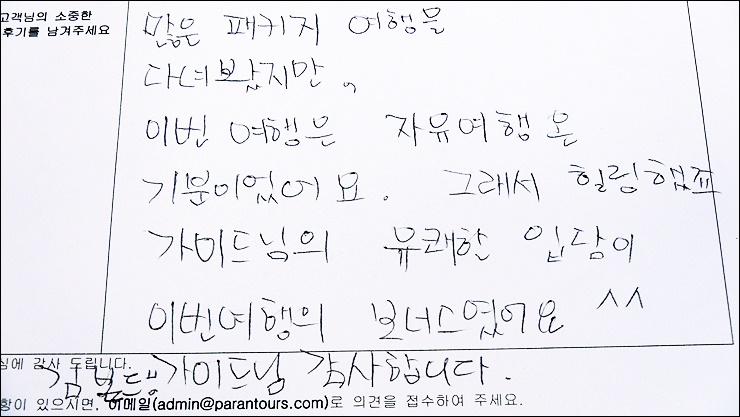 고객님의 소중한
후기를 남겨주세요
많은 패키지 여행을
다녀봤지만,
이번 여행은 자유여행 온
기분이었어요. 그래서 힐링했죠
가이드님의 유쾌한 입담이
이번여행의 보너스였어요 ^^
심에 감사 드립니다.
가이드님 감사합니다.
항이 있으시면, 이메일(admin@parantours.com)로 의견을 접수하여 주세요.